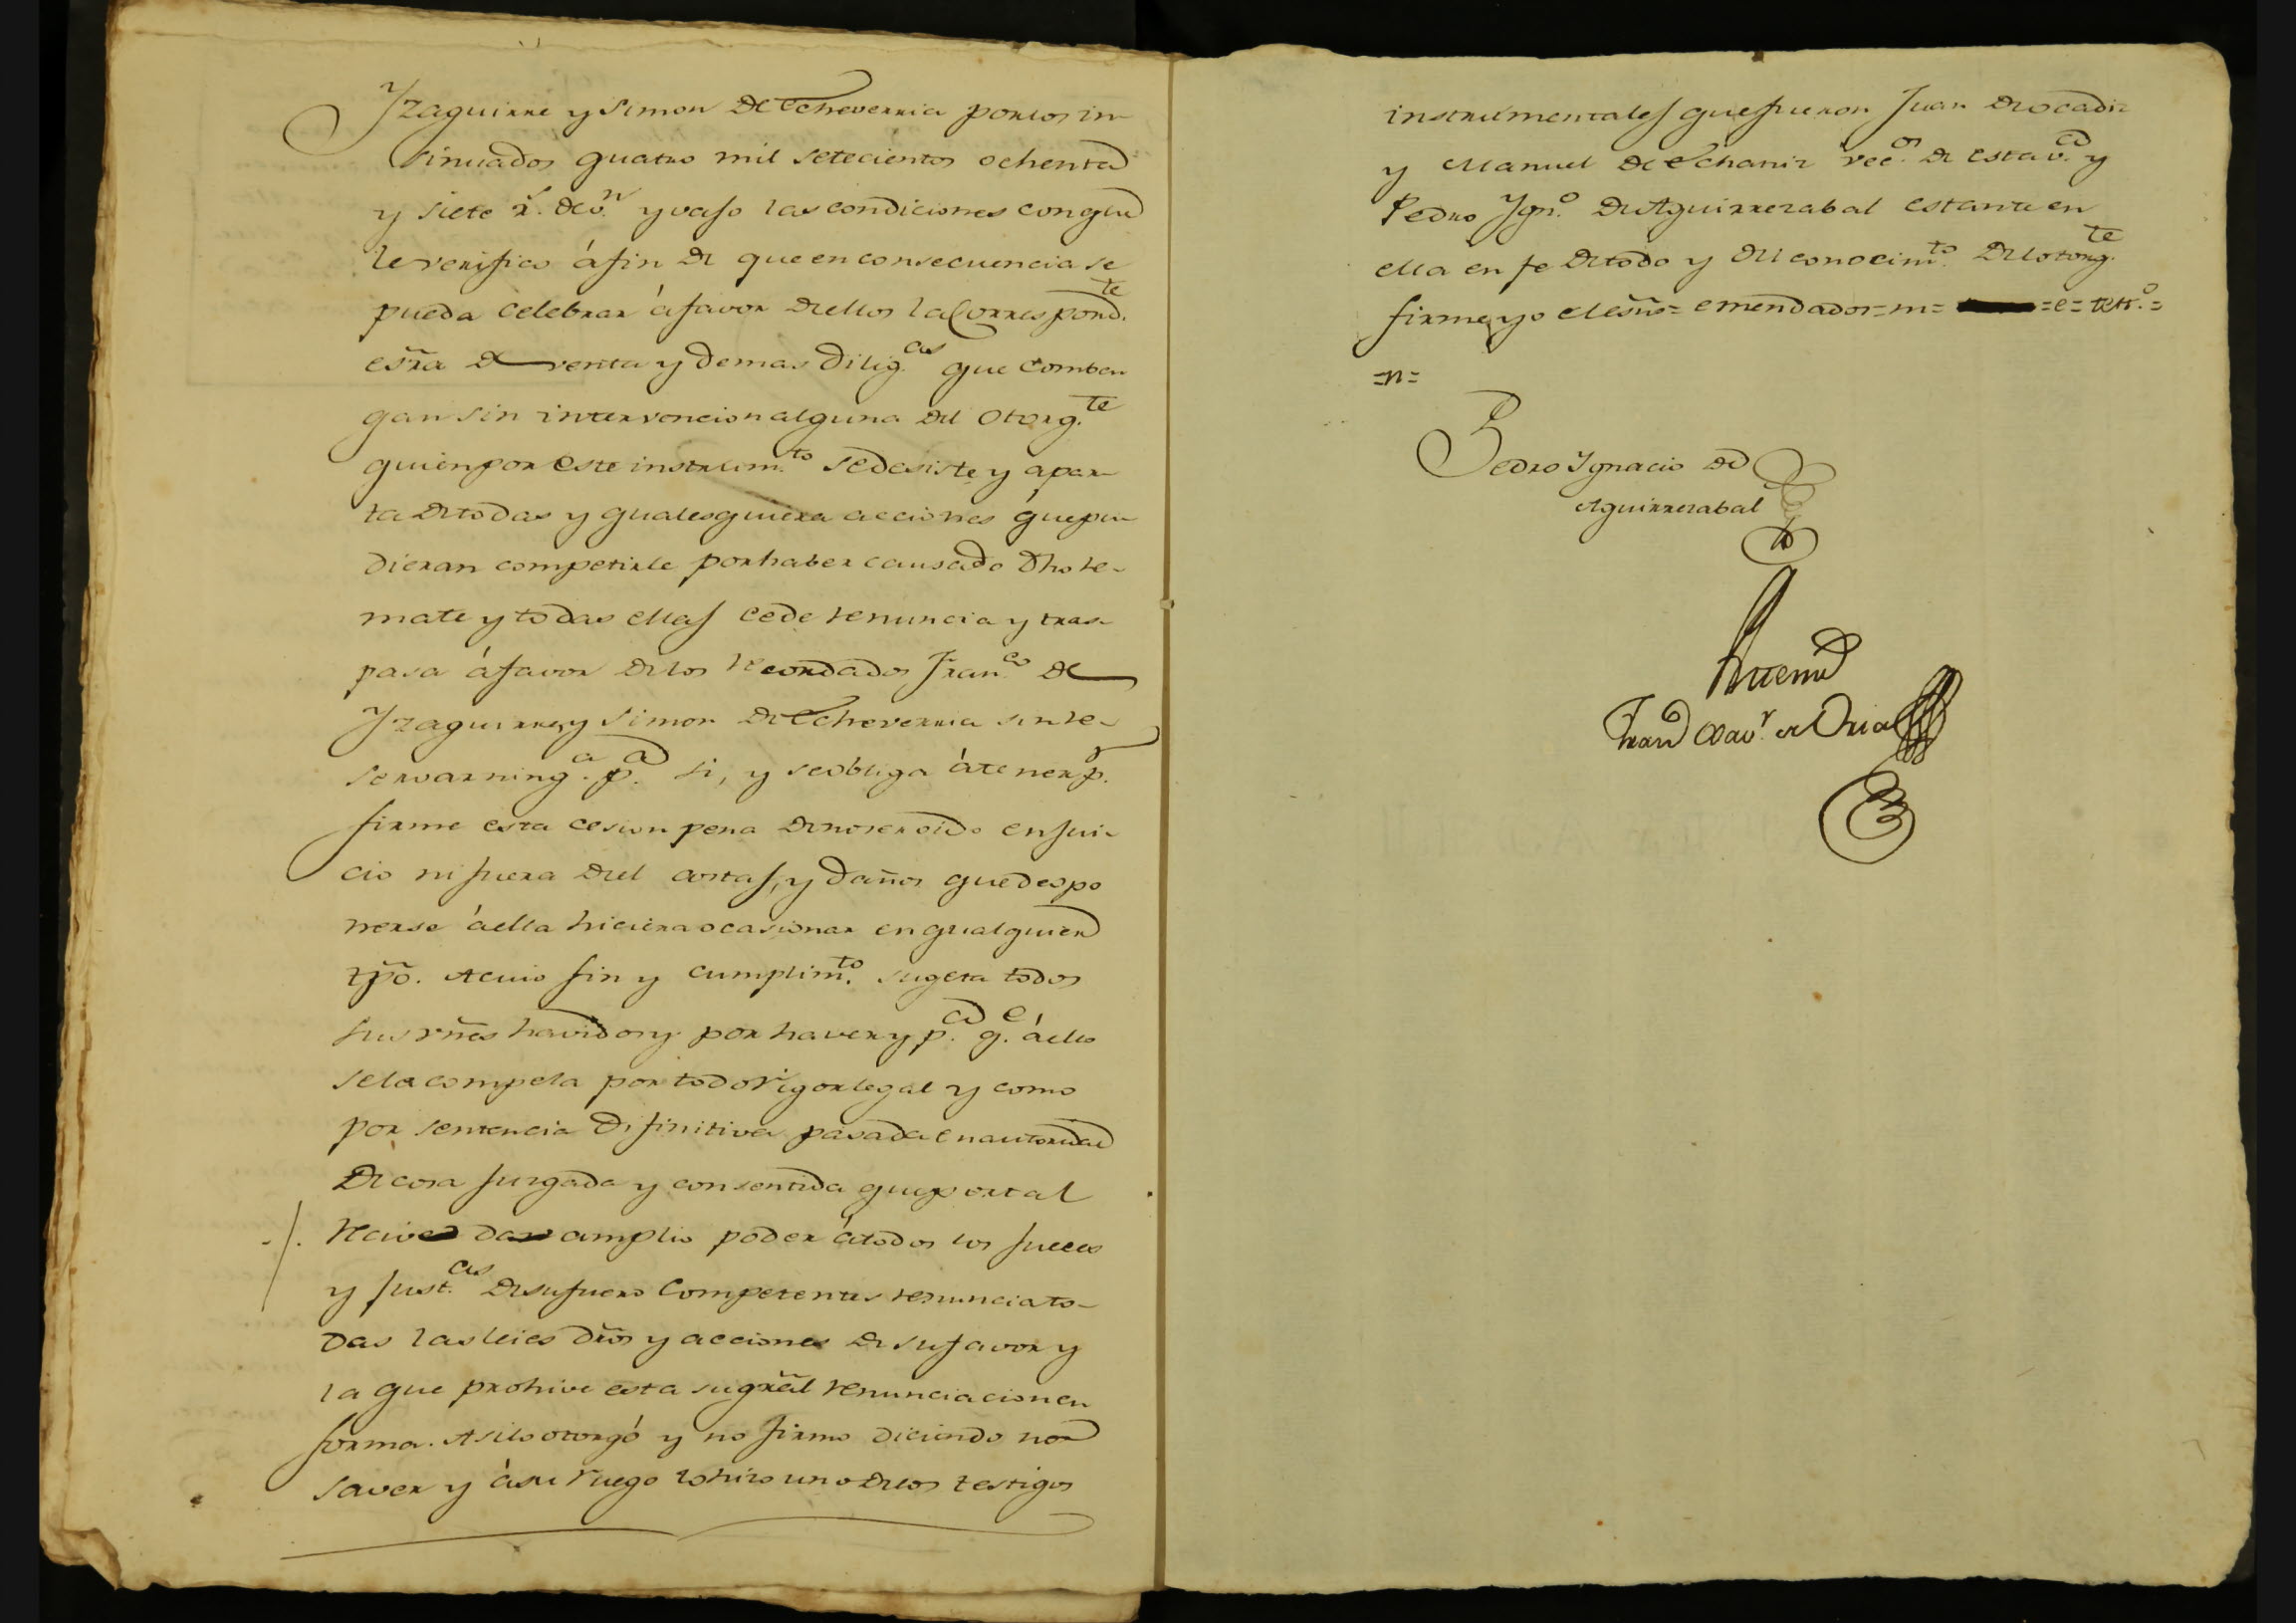 Yzaguirre y Simon de Echeverria por los in-
sinuados quatro mil setecientos ochenta
y siete r.s de v.n y vaso las condiciones conque
se verifico á fin de que en consecuencia se
pueda celebrar á favor de ellos la Correspond.te
esñra de venta y demas dilig.cas que comben
gan sin intervencion alguna del otorg.te
quien por este instrum.to se desiste y apar-
ta de todas y qualesquiera acciones que pu-
dieran competirle por haber causado dho re-
mate y todas ellas cede renuncia y tras-
pasa á favor de los recordados Fran.co de
Yzaguirre, y Simon de Echeverria sin re-
servar ning.a p.a si, y se obliga á tener p.r
firme esta cesion pena de no ser oido en jui-
cio ni fuera de el costas, y daños que de opo
nerse á ella hiciera ocasionar en qualquier
tpõ. A cuio fin y cumplim.to sugeta todos
sus vñes havidos y por haver y p.a q.e á ello
se la compela por todo rigor legal y como
por sentencia difinitiva pasada en autoridad
de cosa juzgada y consentida que por tal
recive da amplio poder á todos los jueces
y Just.cas de su fuero Competentes renuncia to-
das las leies drõs y acciones de su favor y
la que prohive esta su grãl renunciacion en
forma. Asi lo otorgó y no firmo diciendo no
saver y á su ruego lo hizo uno de los testigos
instrumentales que fueron Juan de Ocadiz
y Manuel de Echaniz vec.os de esta v.a y
Pedro Ygn.o de Aguirrezabal estante en
ella en fe de todo y del conocim.to del otorg.te
firme yo el esño= emendador=m= =e= =
=n=
Pedro Ygnacio de
Aguirrezabal
Ante mi
Fran.co Xav.r de Oria